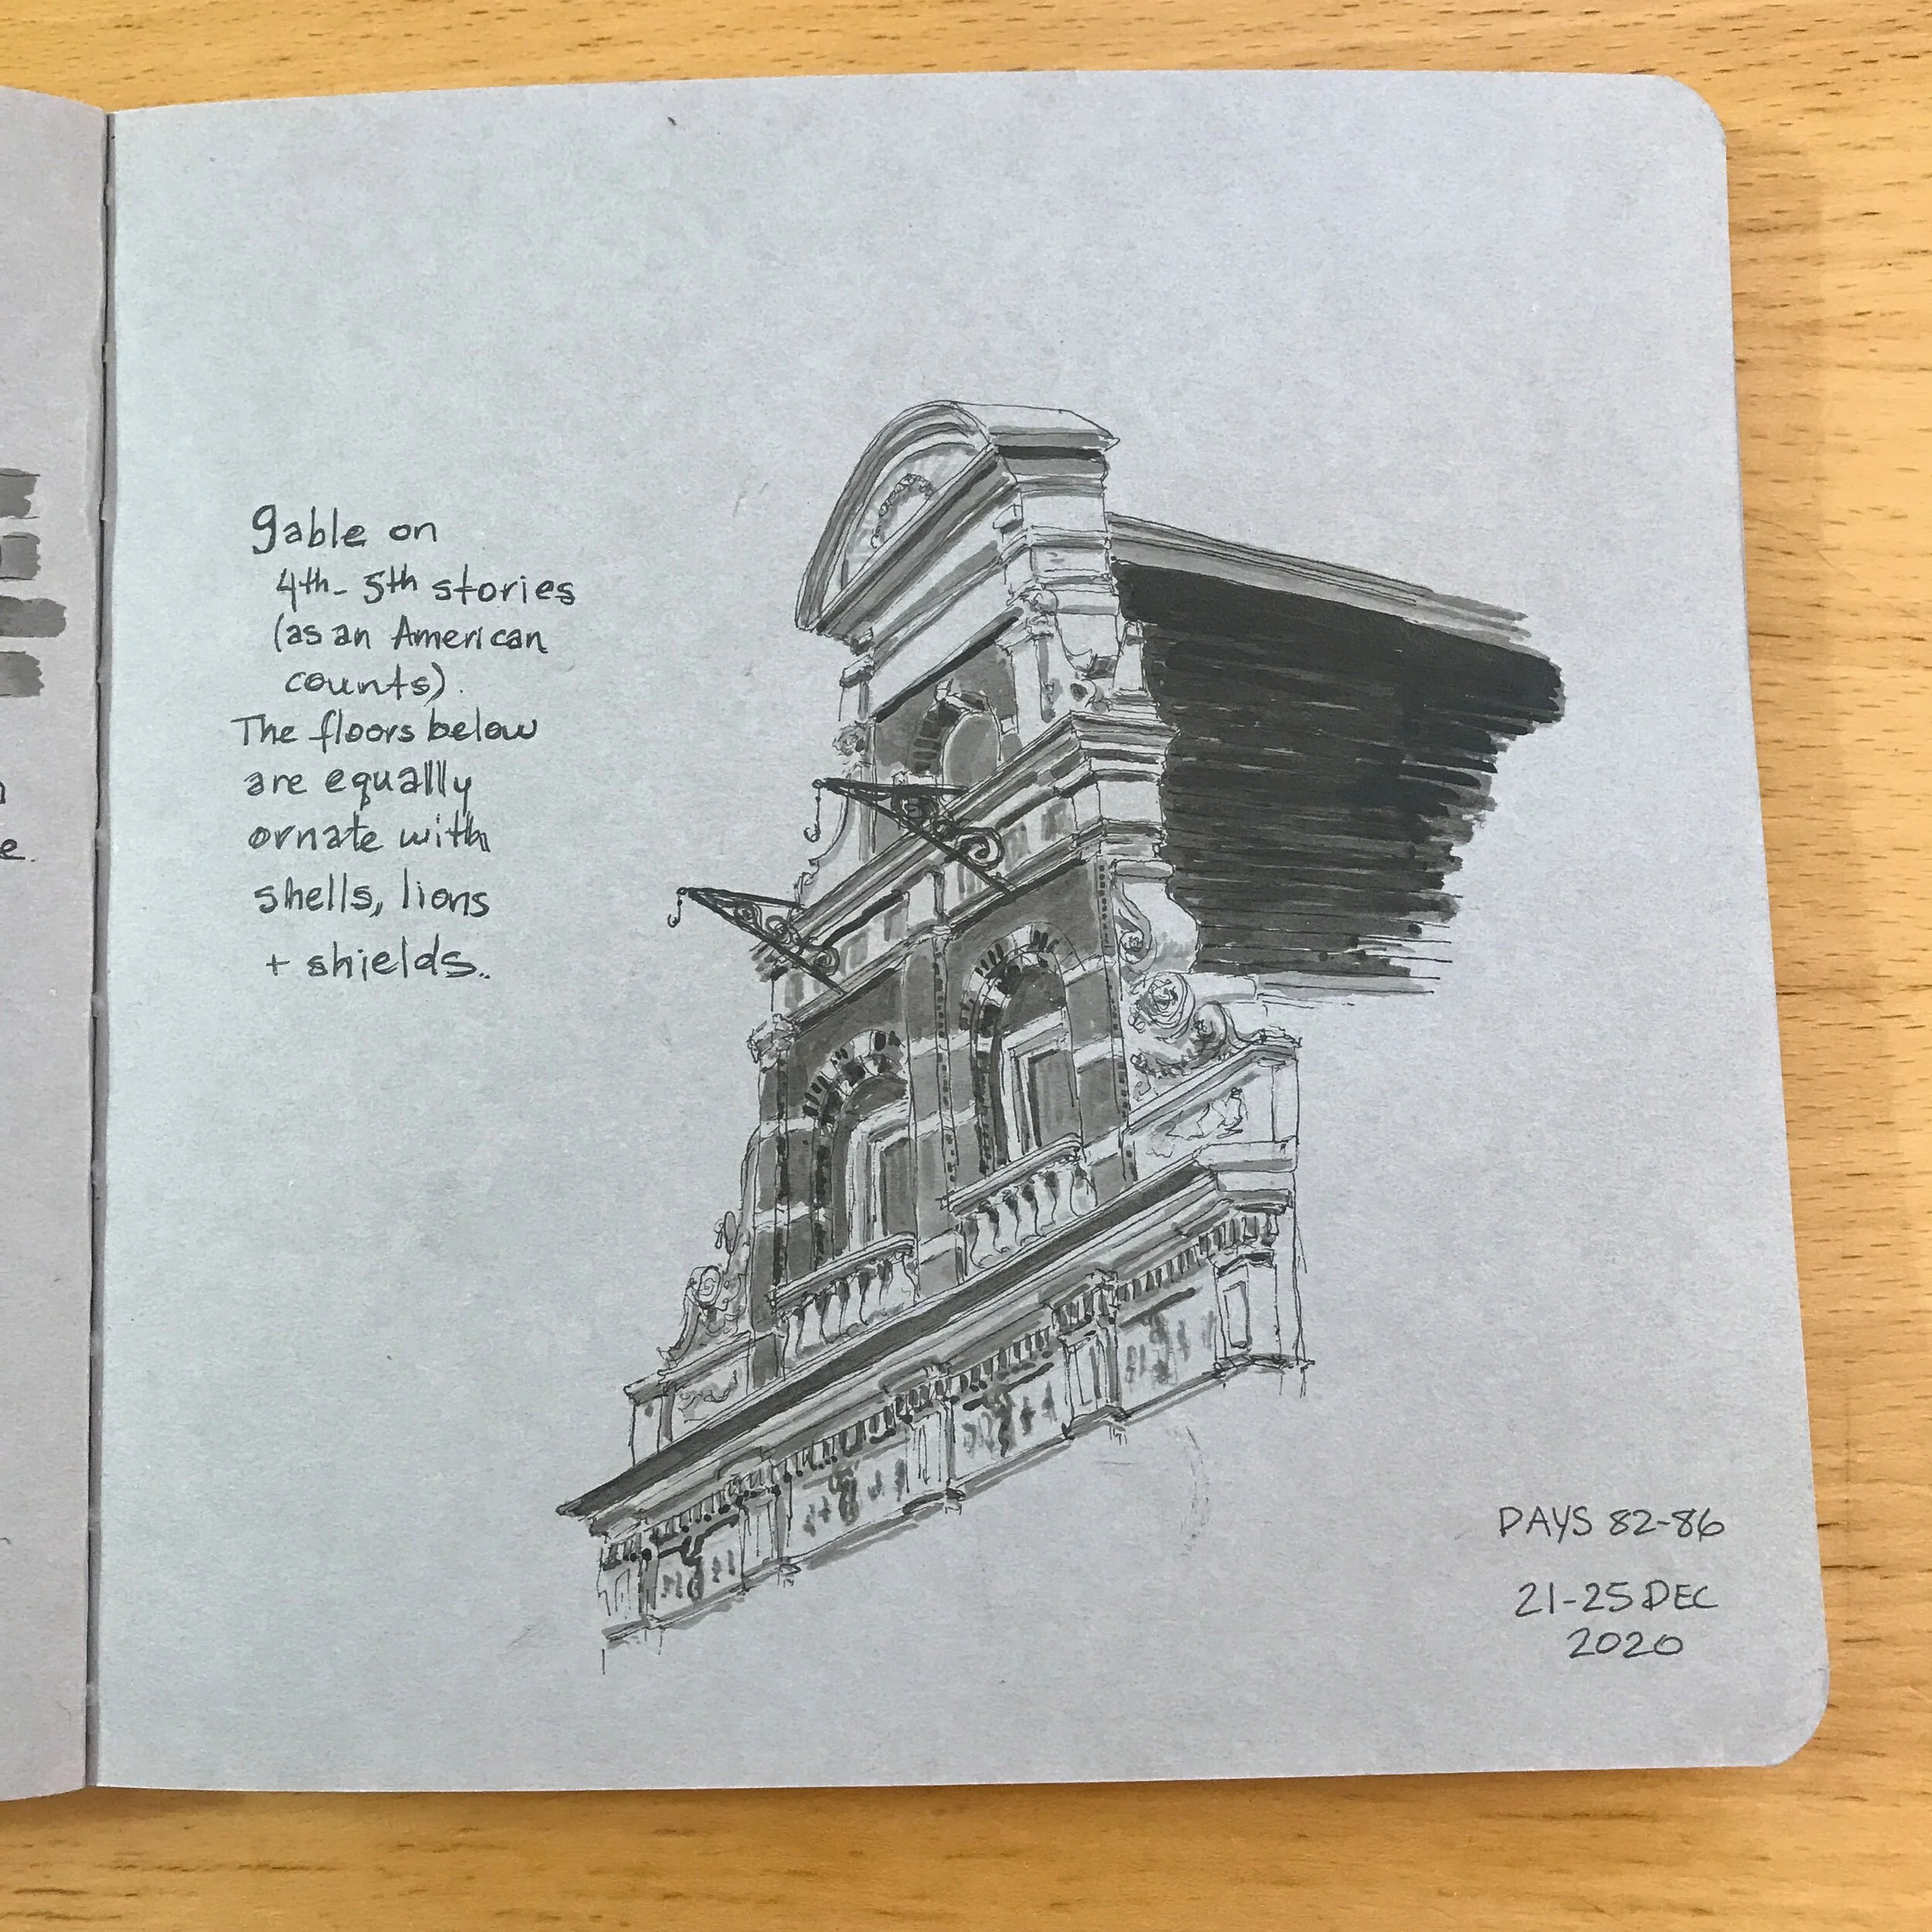 gable on
4th-5th stories
(as an American
counts).
The floors below
are equally
ornate with
shells, lions
+ shields..
DAYS 82-86
21-25 DEC
2020